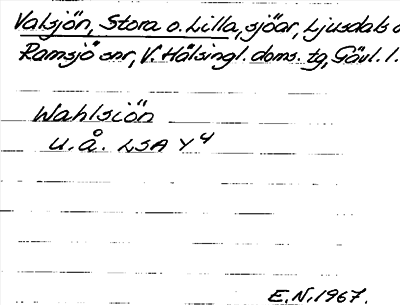 Valsjön, Stora o. Lilla, sjöar, Ljusdals o
Ramsjö snr, V. Hälsingl. doms. tg, Gävl. l.
Wahlsiön
u.å. LSA Y 4
E.N. 1967.